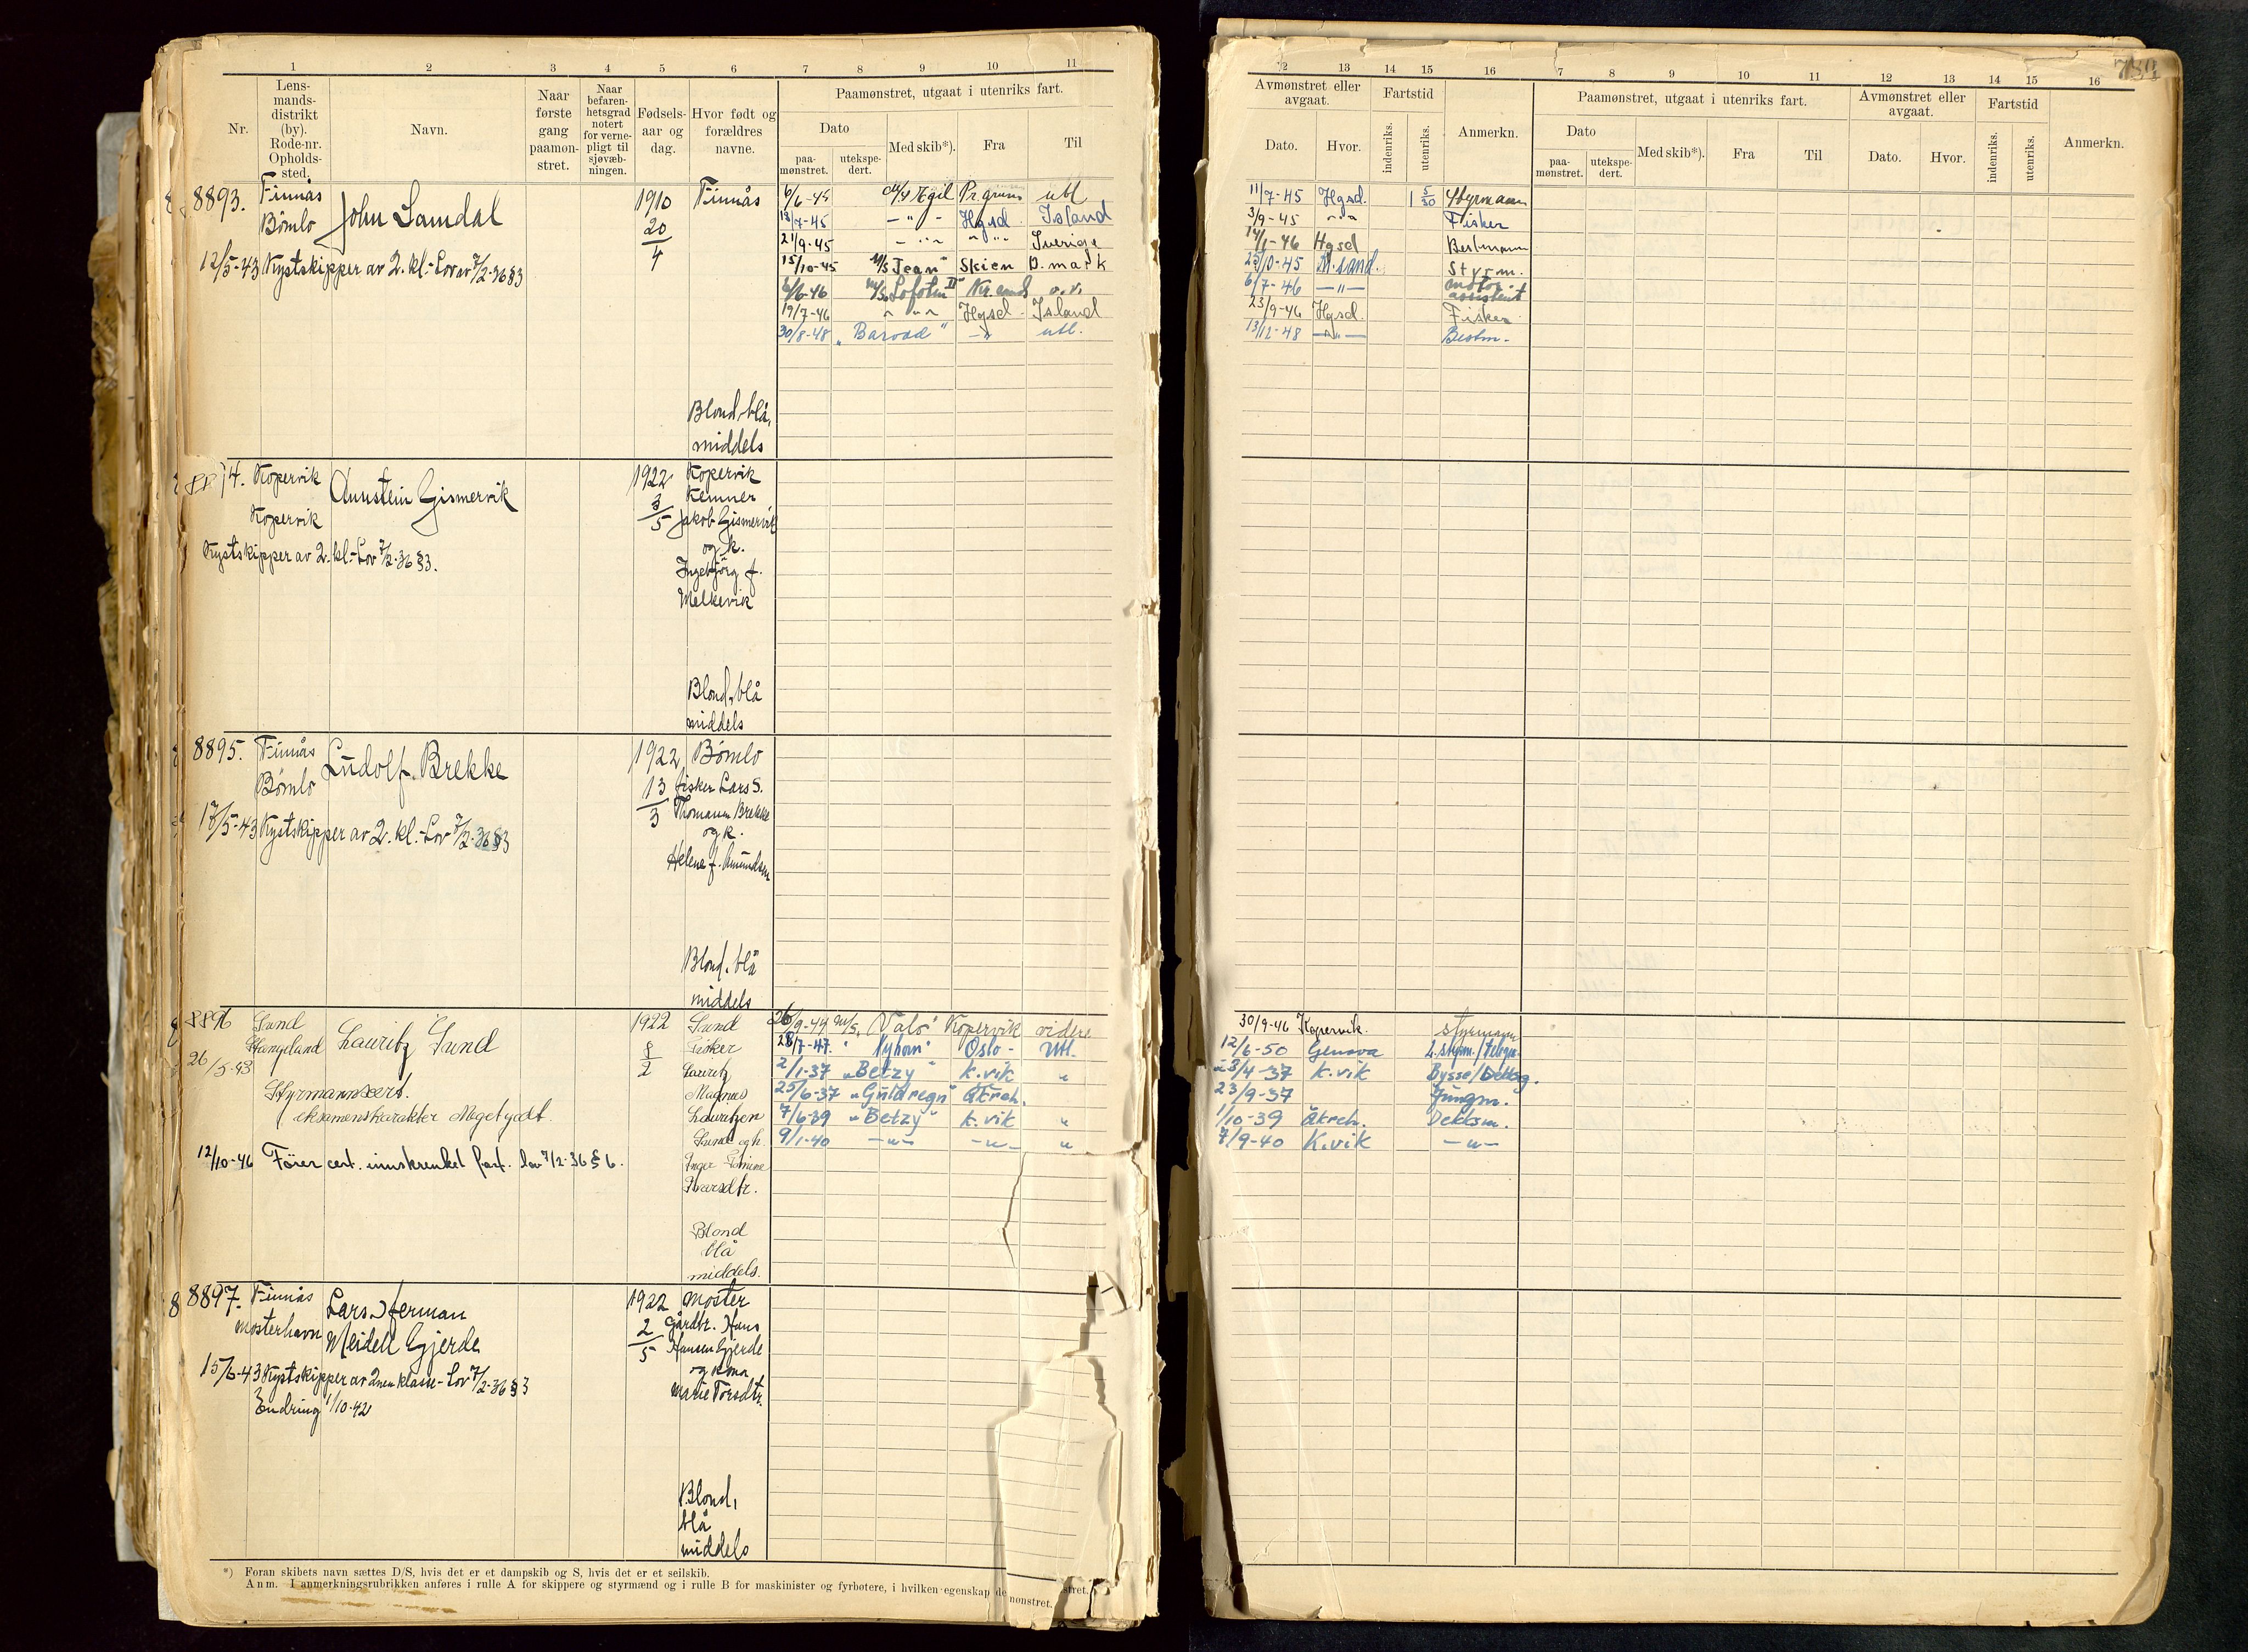 1 2 3 4 5 6 7 8 9 10 11
Nr.
Lens-
mands-
distrikt
(by).
Rode-nr.
Opholds-
sted.
Navn.
Naar
første
gang
paamøn-
stret.
Naar
befaren-
hetsgrad
notert
for verne-
pligt til
sjøvæb-
ningen.
Fødsels-
aar og
dag.
Hvor født og
forældres
navne.
Paamønstret, utgaat i utenriks fart.
Dato
paa-
mønstret.
utekspe-
dert.
Med skib*).
Fra
Til
8893.
Finnås
Bömlo
John Samdal
12/5-43 Kystskipper av 2. kl.- Lov av 7/2-36 §3
1910
20/4
Finnås
Blond, blå,
middels
6/6-45 M/S Egil Pr.grunn utl
13/7-45 - " - Hgsd Island
21/9-45 - " - " Sverige
15/10-45 M/S "Jean" Skien D.mark
6/6-46 M/S Lofotin II Kr.sund
19/7-46 " " " Hgsd - Island
30/8-48 " " -"- utl.
4. Kopervik
Kopervik
Aunstein Gismervik
Kystskipper av 2. kl.- Lov 7/2-36 §3.
1922
3/5
Kopervik
Kemner
Jakob Gismervik
og k.
Ingebjörg f.
Melkevik
Blond, blå
middels
8895.
Finnås
Bömlo
Ludolf Brekke
17/5-43 Kystskipper av 2. kl.- Lov 7/2-36 §3
1922
13/3
Bömlo
fisker Lars S.
Thomassen Brekke
og k.
Helene f. Amundsen
Blond, blå
middels
8896
Sund
Stangeland
Lauritz Sund
26/5-43
Styrmannscert.
eksamenskarakter Meget godt.
12/10-46 Förer cert. innskrenket fart. lov 7/2-36 § 6.
1922
8/2
Sund
Fisker
Lauritz
Magnus
Lauritzen
Sund og h.
Inger
Blond
blå
middels.
26/9-44 M/S. "Valo" Kopervik videre
28/7-47. " Nyhorn" Oslo - Utl.
2/1-37 "Betzy" K.vik "
25/6-37 "Guldregn" Åkreh.
7/6-39 "Betzy" K.vik "
9/1-40 -"- -"- "
8897.
Finnås
Mosterhavn
Lars Herman
Meidell Gjerde
15/6-43 Kystskipper av 2nen klasse - Lov 7/2-36 § 3
Endring 1/10-42
1922
2/5
Moster
Gårdbr. Hans
Hansen Gjerde
og kona
Marie Torsdtr.
Blond,
blå
middels
*) Foran skibets navn sættes D/S, hvis det er et dampskib og S, hvis det er et seilskib.
Anm. I anmerkningsrubrikken anføres i rulle A for skippere og styrmænd og i rulle B for maskinister og fyrbøtere, i hvilken egenskap de
mønstret.
12 13 14 15 16 7 8 9 10 11 12 13 14 15 16
Avmønstret eller
avgaat.
Dato. Hvor.
Fartstid
indenriks. utenriks.
Anmerkn.
Paamønstret, utgaat i utenriks fart.
Dato
paa-
mønstret.
utekspe-
dert.
Med skib*).
Fra
Til
Avmønstret eller
avgaat.
Dato. Hvor.
Fartstid
indenriks. utenriks.
Anmerkn.
11/7-45 Hgsd. 1 5/30 Styrmann
3/9-45 " " " Fisker
14/1-46 Hgsd Bestmann
25/10-45 Styrm.
6/7-46 -"- motor-
assistent
23/9-46 Hgsd. Fisker
13/12-48 -"- Bestm-
30/9-46 Kopervik. styrmann
12/6-50 Genova
/4-37 K.vik
23/9-37 Jungm.
1/10-39 Åkreh. Dekksm.
7/9-40 K.vik -"-